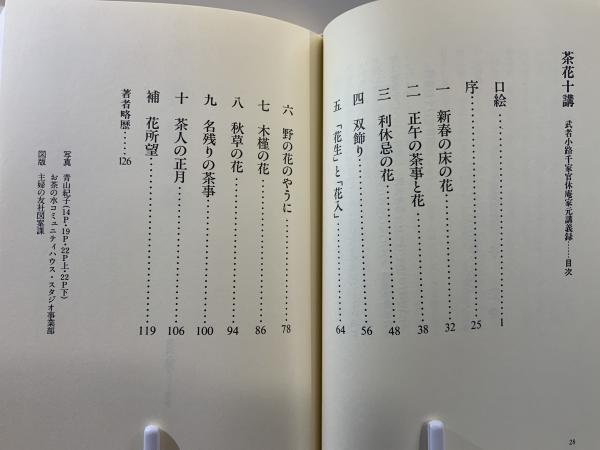 茶花十講　武者小路千家官休庵家元講義録……目次
口絵…………1
序…………25
一　新春の床の花…………32
二　正午の茶事と花…………38
三　利休忌の花…………48
四　双飾り…………56
五　「花生」と「花入」…………64
六　野の花のやうに…………78
七　木槿の花…………86
八　秋草の花…………94
九　名残りの茶事…………100
十　茶人の正月…………106
補　花所望…………119
著者略歴……126
写真　青山紀子(14P・19P・22P上・22P下)
お茶の水コミュニティハウス・スタジオ事業部
図版　主婦の友社図案課
28